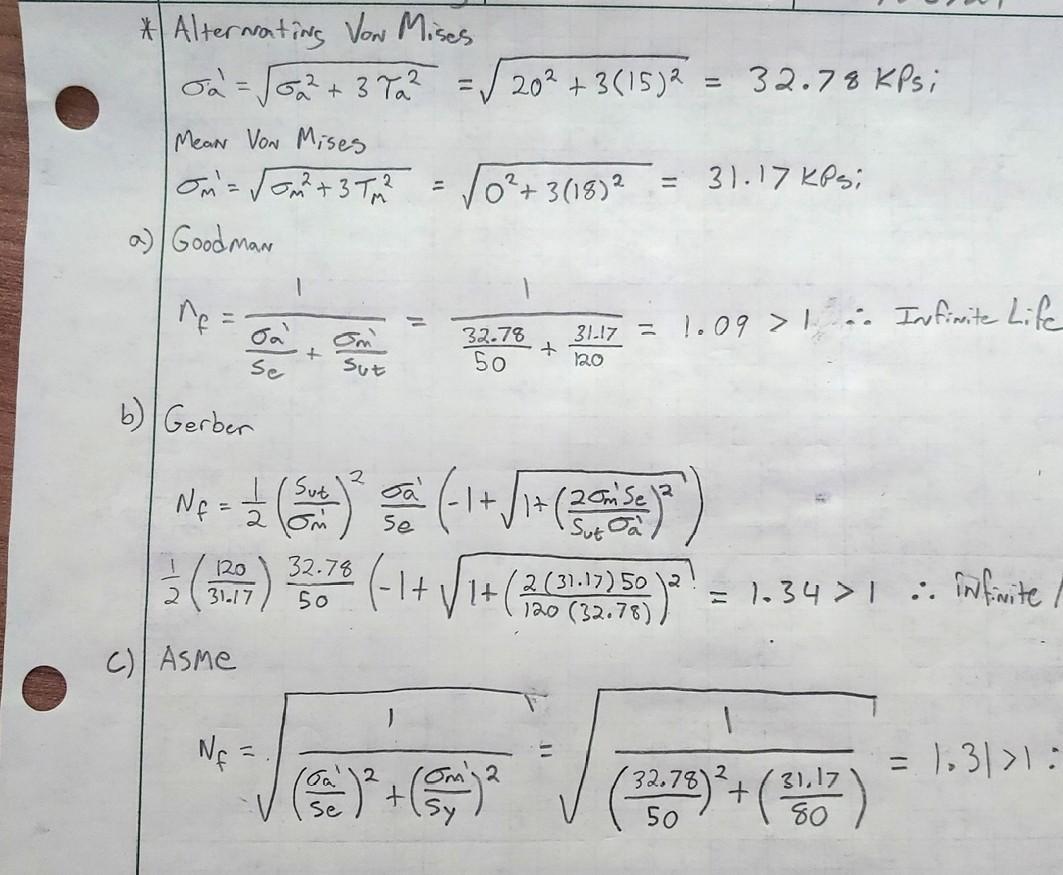 * Alternating Von Mises
σa' = √(σa² + 3τa²) = √(20² + 3(15)²) = 32.78 KPsi
Mean Von Mises
σm' = √(σm² + 3τm²) = √(0² + 3(18)²) = 31.17 KPsi
a) Goodman
nf = 1/(σa'/Se + σm'/Sut) = 1/(32.78/50 + 31.17/120) = 1.09 > 1 ∴ Infinite Life
b) Gerber
Nf = 1/2 (Sut/σm')² σa'/Se (-1 + √(1 + (2σm'Se/Sut σa')²))
1/2 (120/31.17) 32.78/50 (-1 + √(1 + (2(31.17)50/120(32.78))²)) = 1.34 > 1 ∴ infinite
c) Asme
Nf = √(1/((σa'/Se)² + (σm'/Sy)²)) = √(1/((32.78/50)² + (31.17/80))) = 1.31 > 1 :